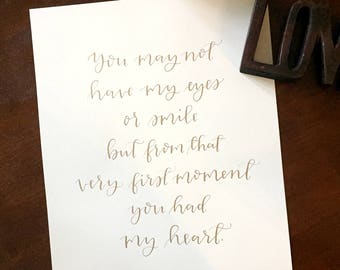 LOVE
You may not
have my eyes
or smile
but from that
very first moment
you had
my heart.